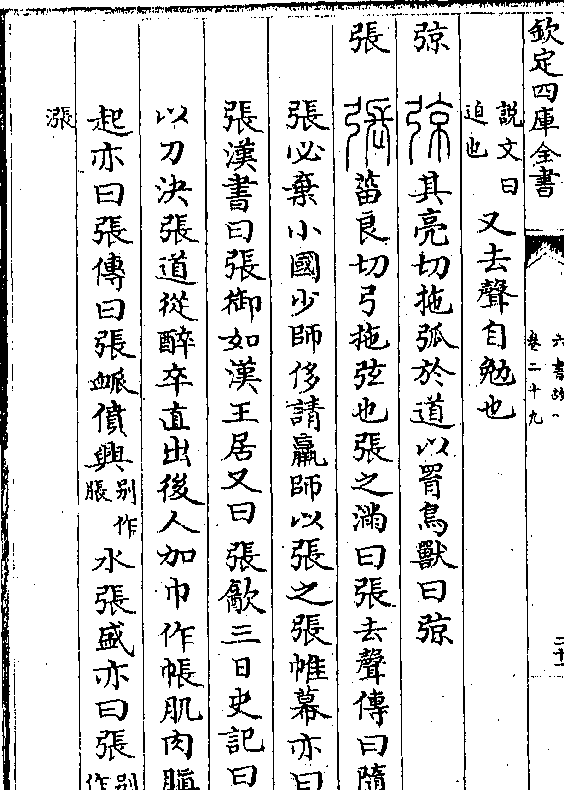 欽定四庫全書
六書故
卷二十九
說文曰
迫也
又去聲自勉也
弶 其亮切拖弧於道以罥鳥獸曰弶
張 葘良切弓拖弦也張之滿曰張去聲傳曰隨
張必棄小國少師侈請羸師以張之張帷幕亦曰
張漢書曰張御如漢王居又曰張飲三日史記曰
以刀決張道從醉卒直出後人加巾作帳肌肉䐜
起亦曰張傳曰張脈僨興 别作
脹 水張盛亦曰張 别
作
漲